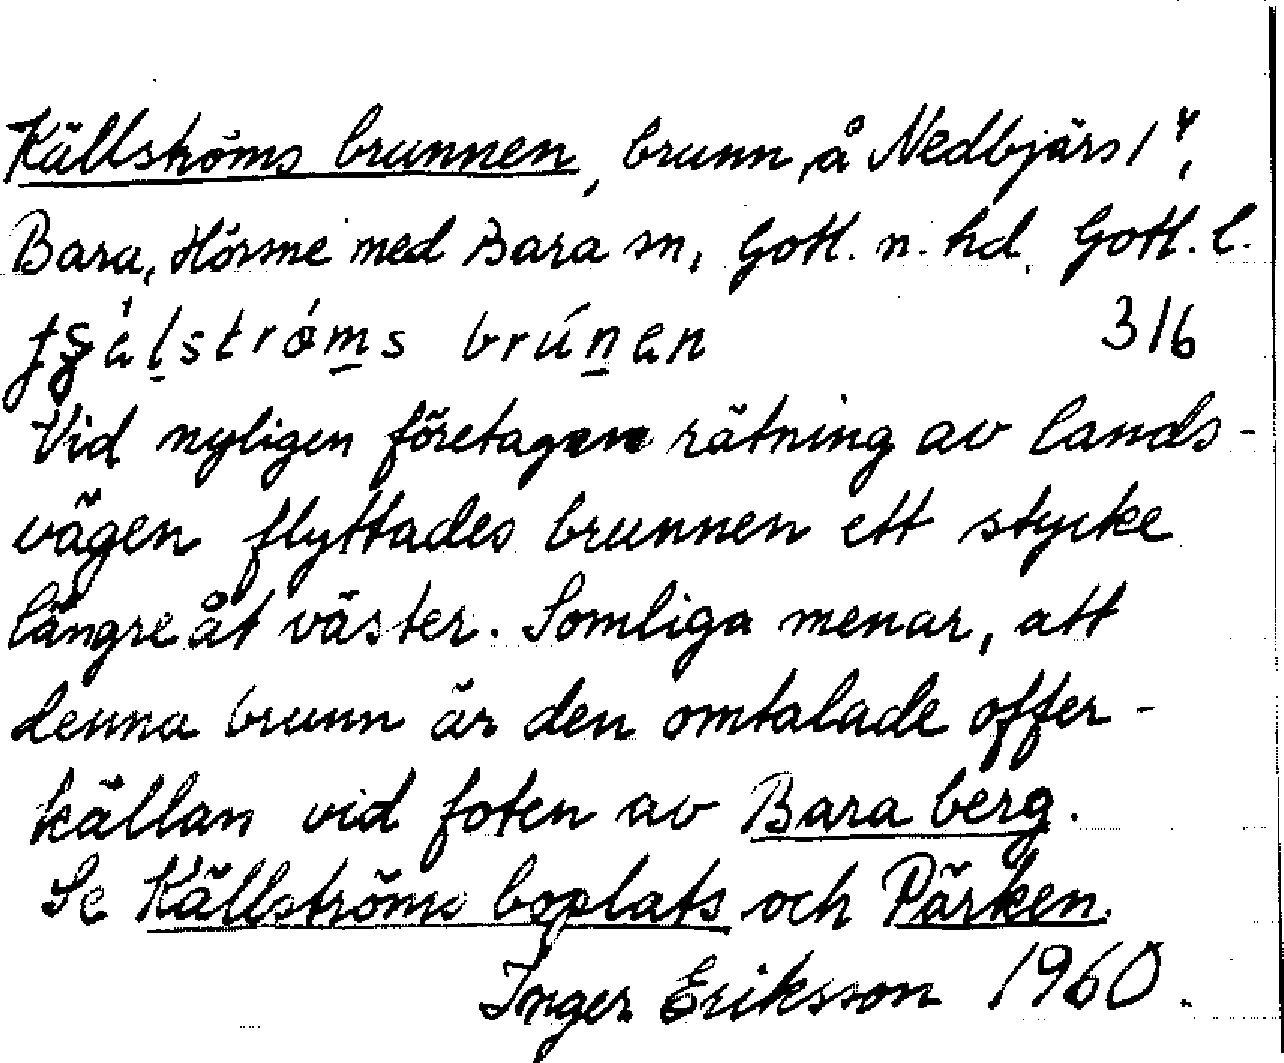 Källströms brunnen, brunn å Nedbjärs 1⁴,
Bara, Hörsne med Bara sn, Gotl. n. hd, Gotl. l.
316
Vid nyligen företagen rätning av lands-
vägen flyttades brunnen ett stycke
längre åt väster. Somliga menar, att
denna brunn är den omtalade offer-
källan vid foten av Bara berg.
Se Källströms boplats och Pärken.
Inger Eriksson 1960.